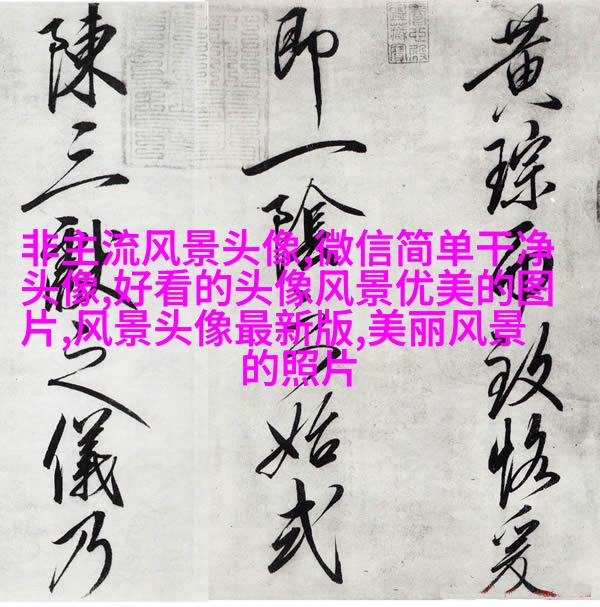 非主流风景头像,微信简单干净
头像,好看的头像风景优美的图
片,风景头像最新版,美丽风景
的照片
黄琮致恪爰
即一陰始式
陳三獻之儀乃